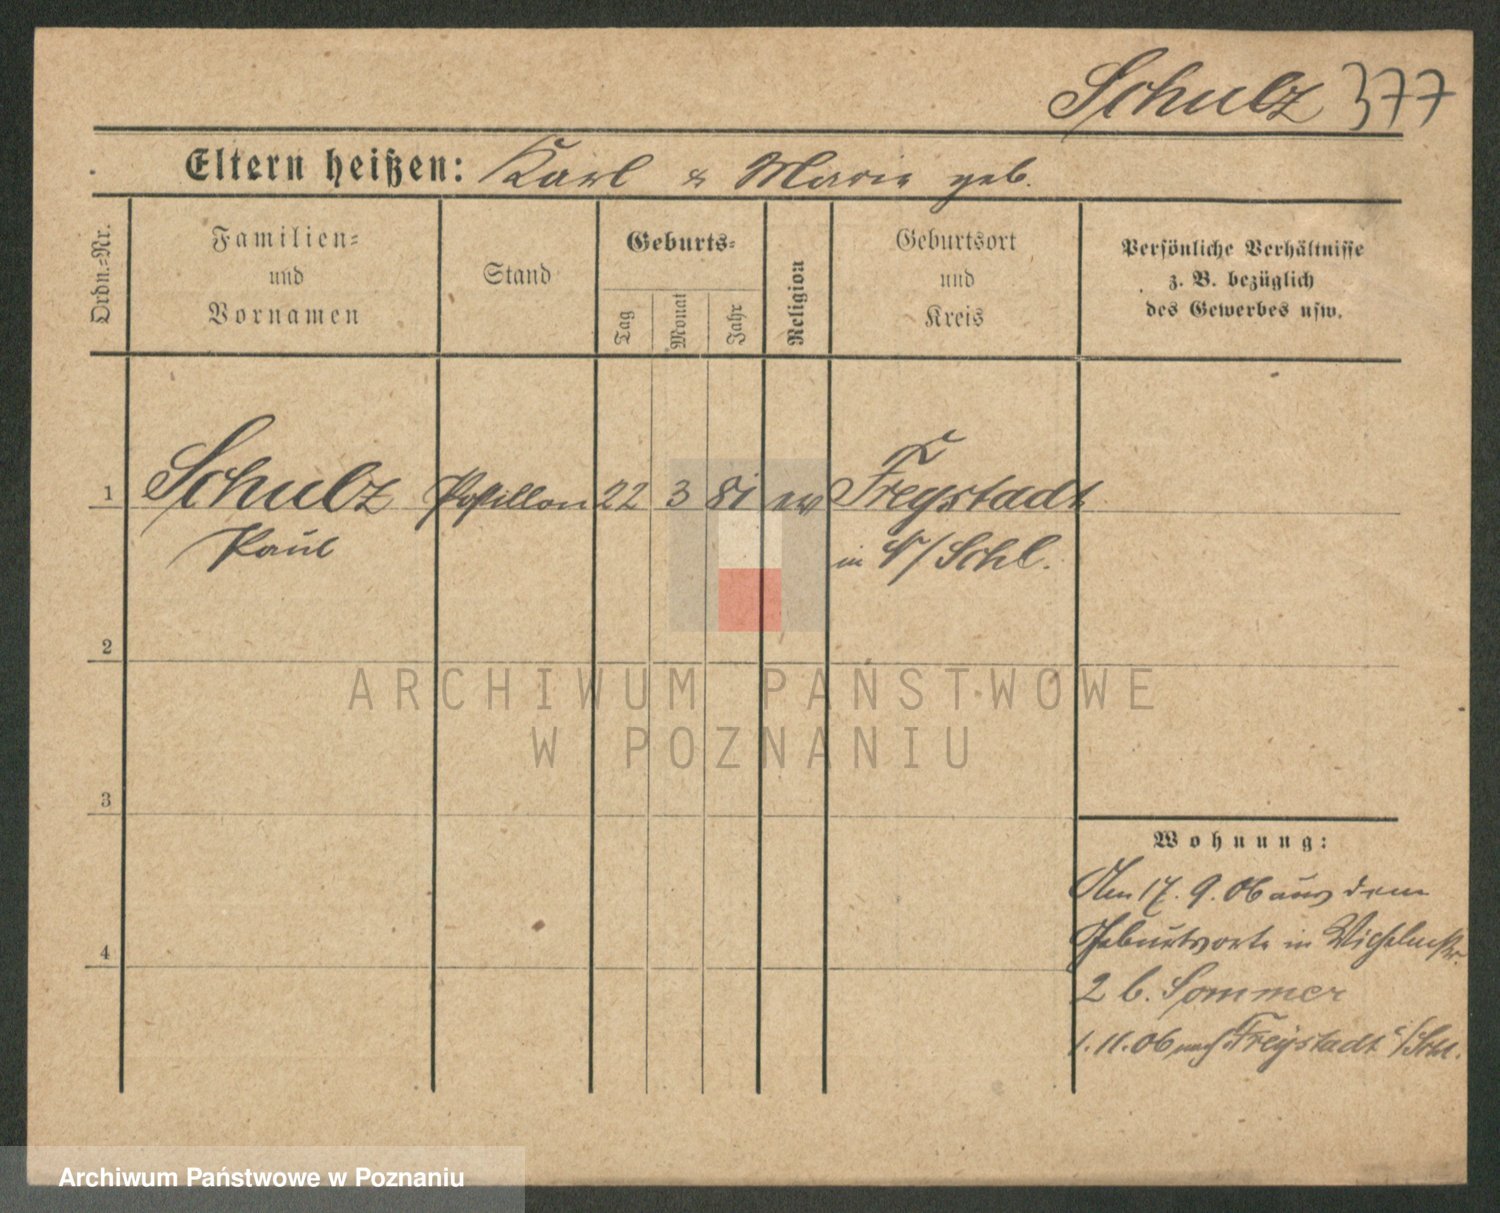 Schulz 377
Eltern heißen: Karl & Marie geb.
Ordn.-Nr.
Familien-
und
Vornamen
Stand
Geburts-
Tag
Monat
Jahr
Religion
Geburtsort
und
Kreis
Persönliche Verhältnisse
z. B. bezüglich
des Gewerbes usw.
1 Schulz Postillon 22 3 81 ev Freystadt
Paul in N/Schl.
2
ARCHIWUM PAŃSTWOWE
W POZNANIU
3
Wohnung:
Am 17. 9. 06 aus dem
Geburtsorte in Wilhelmstr.
4
2 b. Sommer
1. 11. 06 nach Freystadt /Schl.
Archiwum Państwowe w Poznaniu